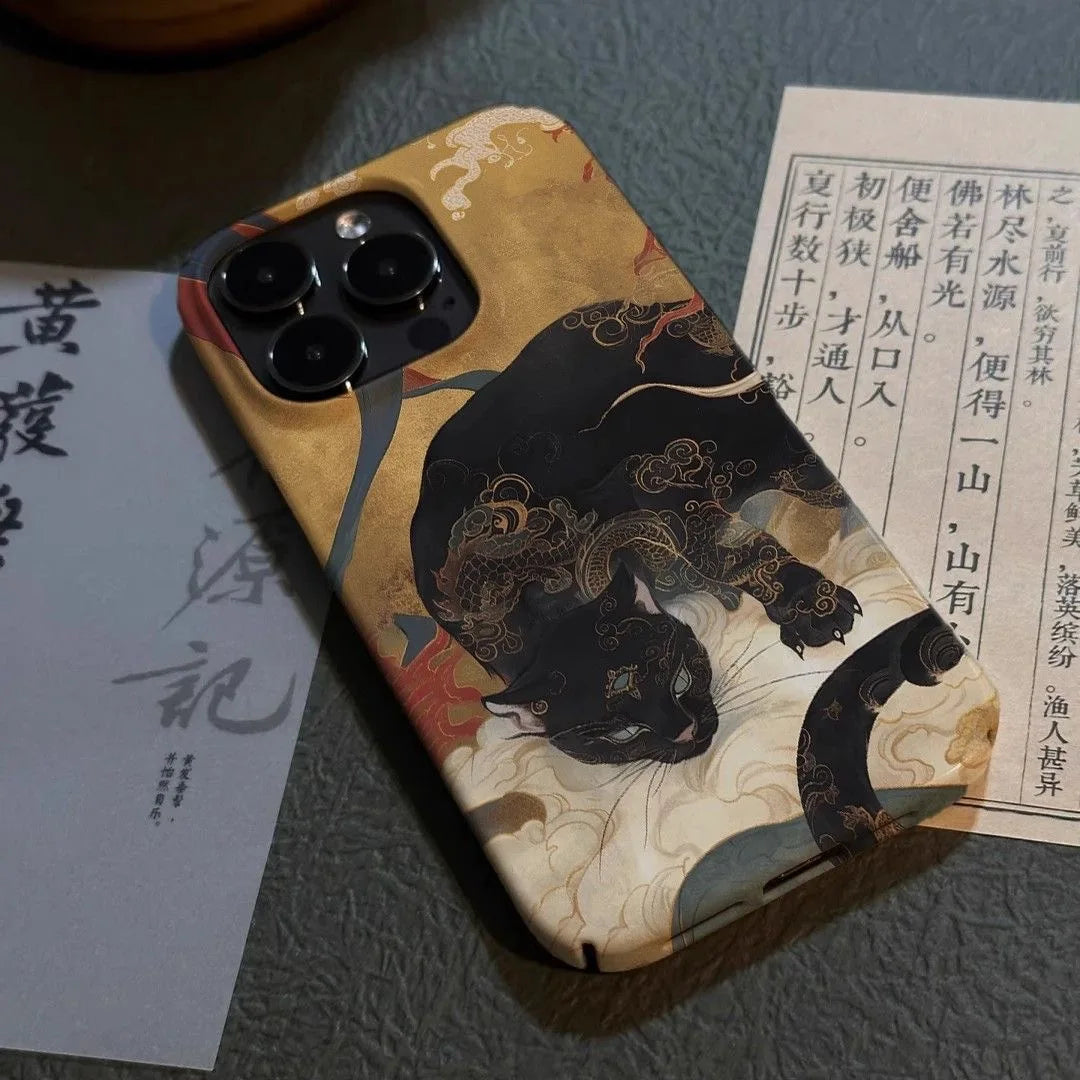 草鲜美，落英缤纷。渔人甚异
之，复前行，欲穷其林。
林尽水源，便得一山，山有
佛若有光。
便舍船，从口入。
初极狭，才通人。
复行数十步，豁
源記
黄发垂髫，
并怡然自乐。
黄發